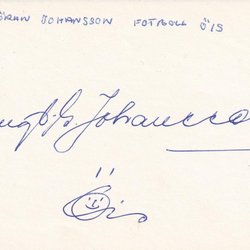 ÖRAN JOHANSSON FOTBOLL ÖIS
Johansso
Öis